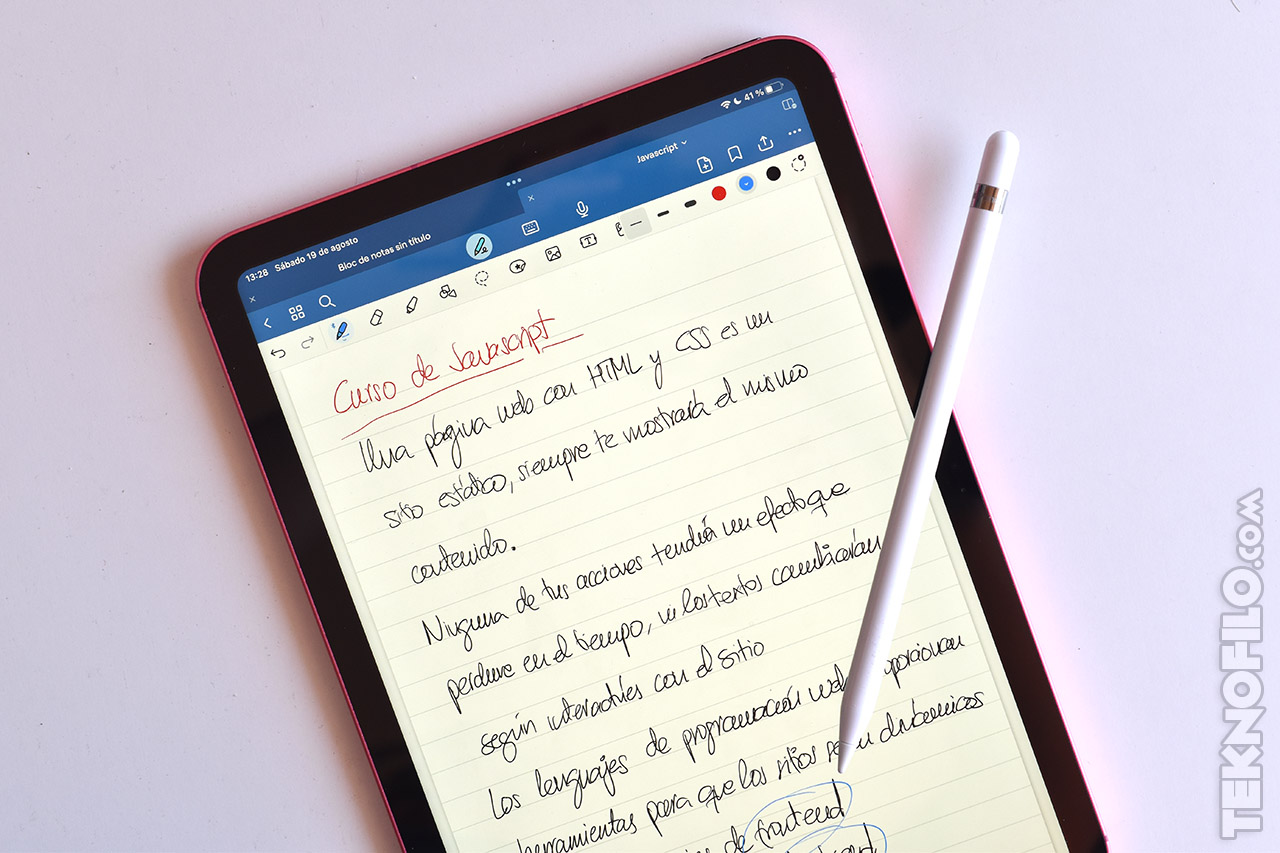 13:28 Sábado 19 de agosto
41 %
Bloc de notas sin título
Javascript
Curso de Javascript
Una página web con HTML y CSS es un
sitio estático, siempre te mostrará el mismo
contenido.
Ninguna de tus acciones tendrá un efecto que
perdure en el tiempo, ni los textos cambiarán
según interactúes con el sitio
Los lenguajes de programación
herramientas para que los sitios dinámicos
de frontend
TEKNOFILO.COM